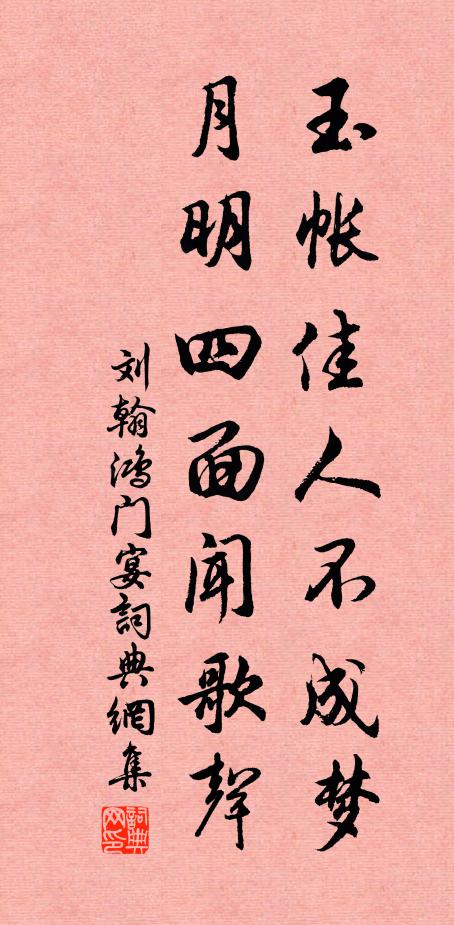 玉帐佳人不成梦
月明四面闻歌聲
刘翰鸿门宴詞典網集
詞典网印